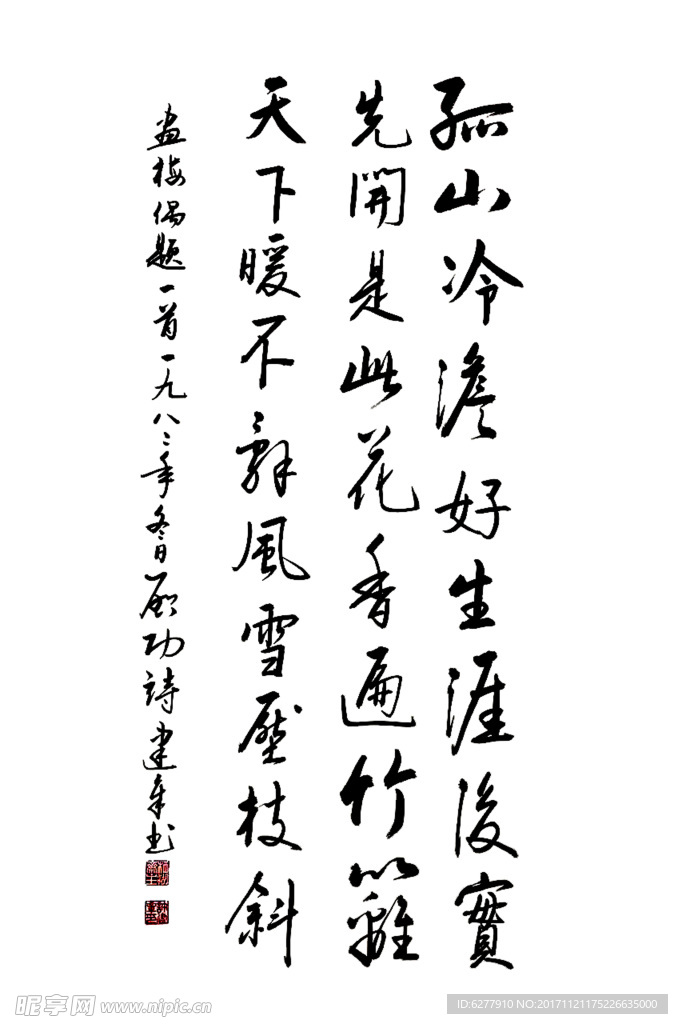 孤山冷澹好生涯後實
先開是此花香遍竹籬
天下暖不辭風雪壓枝斜
畫梅偶題一首一九八二年冬日啟功詩建年书
昵享网 www.nipic.cn
ID:6277910 NO:20171121175226635000